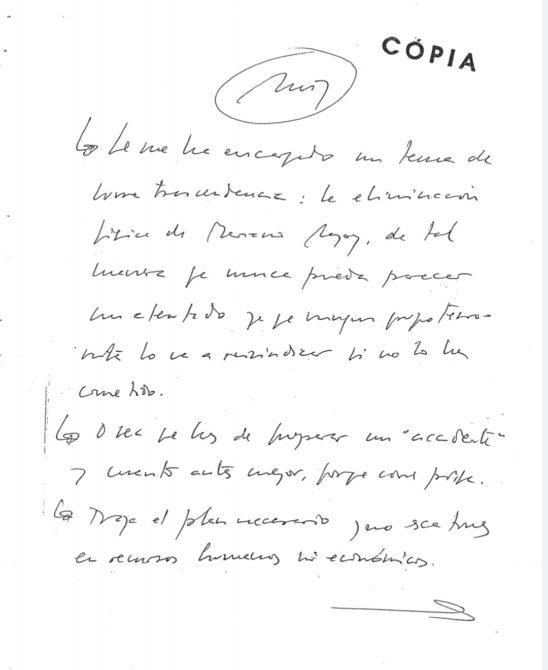 CÓPIA
Muy
Se me ha encargado un tema de
suma trascendencia: la eliminación
física de Mariano Rajoy, de tal
manera que nunca pueda parecer
un atentado ya que ningún grupo terro-
rista lo va a reivindicar si no lo ha
cometido.
O sea que hay de preparar un "accidente"
y cuanto antes mejor, porque corre prisa.
Traza el plan necesario y no escatimes
en recursos humanos ni económicos.